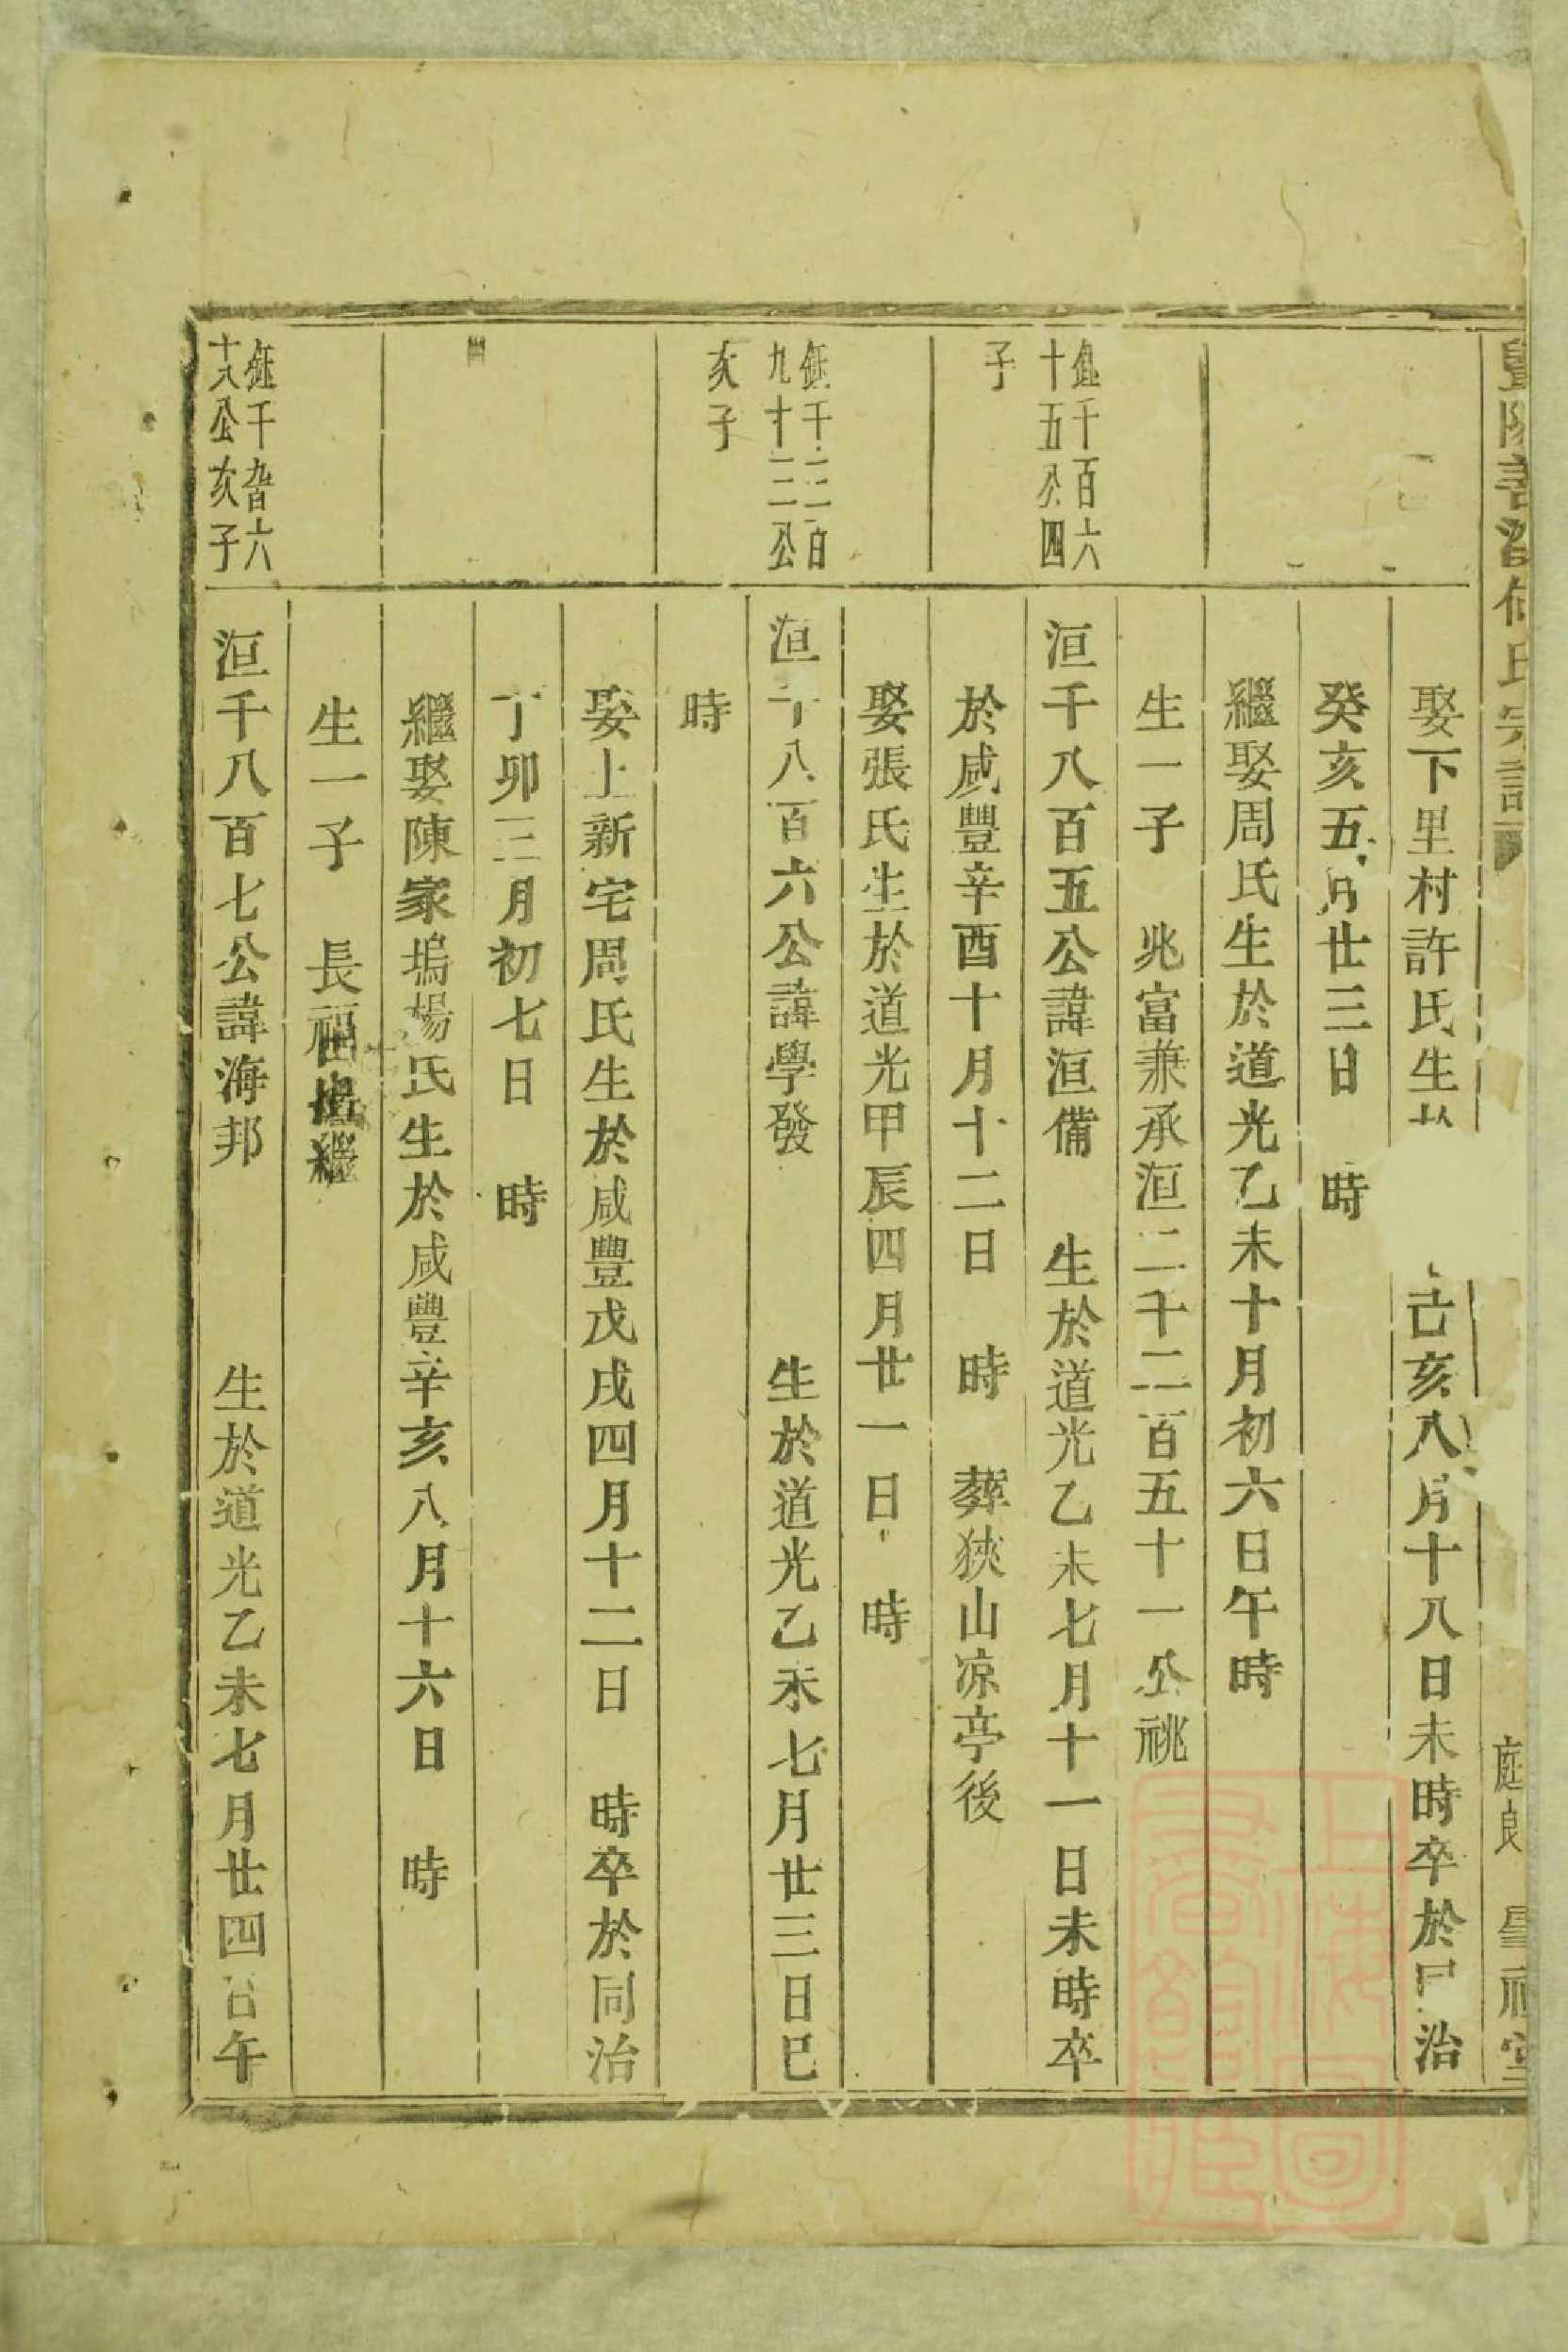 暨陽善溪何氏宗譜
庭良
星祠堂
娶下里村許氏生於
己亥八月十八日未時卒於同治
癸亥五月廿三日 時
繼娶周氏生於道光乙未十月初六日午時
生一子 兆富兼承洹二千二百五十一公祧
鉦千百六
十五公四
子
洹千八百五公諱洹備 生於道光乙未七月十一日未時卒
於咸豐辛酉十月十二日 時 葬狹山凉亭後
娶張氏生於道光甲辰四月廿一日 時
鉦千二百
九十二公
亥子
洹千八百六公諱學發 生於道光乙未七月廿三日巳
時
娶上新宅周氏生於咸豐戊戌四月十二日 時卒於同治
丁卯三月初七日 時
繼娶陳家塢楊氏生於咸豐辛亥八月十六日 時
生一子 長福出繼
鉦千六
十八公次子
洹千八百七公諱海邦 生於道光乙未七月廿四日午